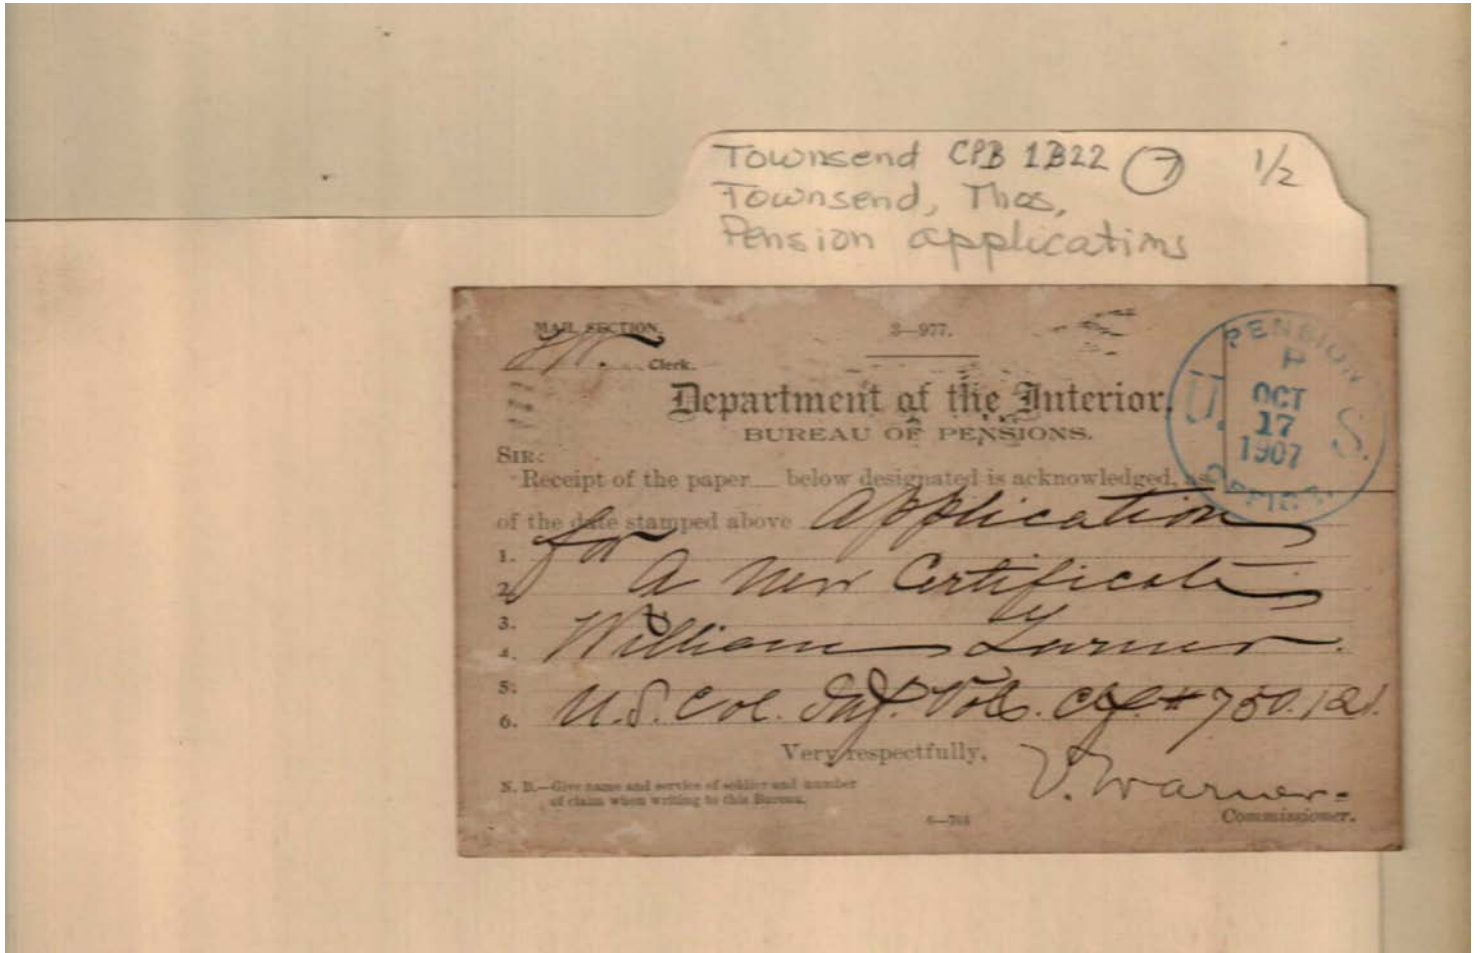 Townsend CPB 1B22 7 1/2
Townsend, Thos,
Pension applications
MAIL SECTION.
3—977.
Clerk.
Department of the Interior,
BUREAU OF PENSIONS.
PENSION OFFICE
U. S.
P
OCT
17
1907
SIR:
Receipt of the paper below designated is acknowledged, as
of the date stamped above Application
1. for
2. A New Certificate
3. by
4. William Turner.
5.
6. U.S. Col. Inf. Vols. Ctf. # 750.121.
Very respectfully,
V. Warner
Commissioner.
N. B.—Give name and service of soldier and number
of claim when writing to this Bureau.